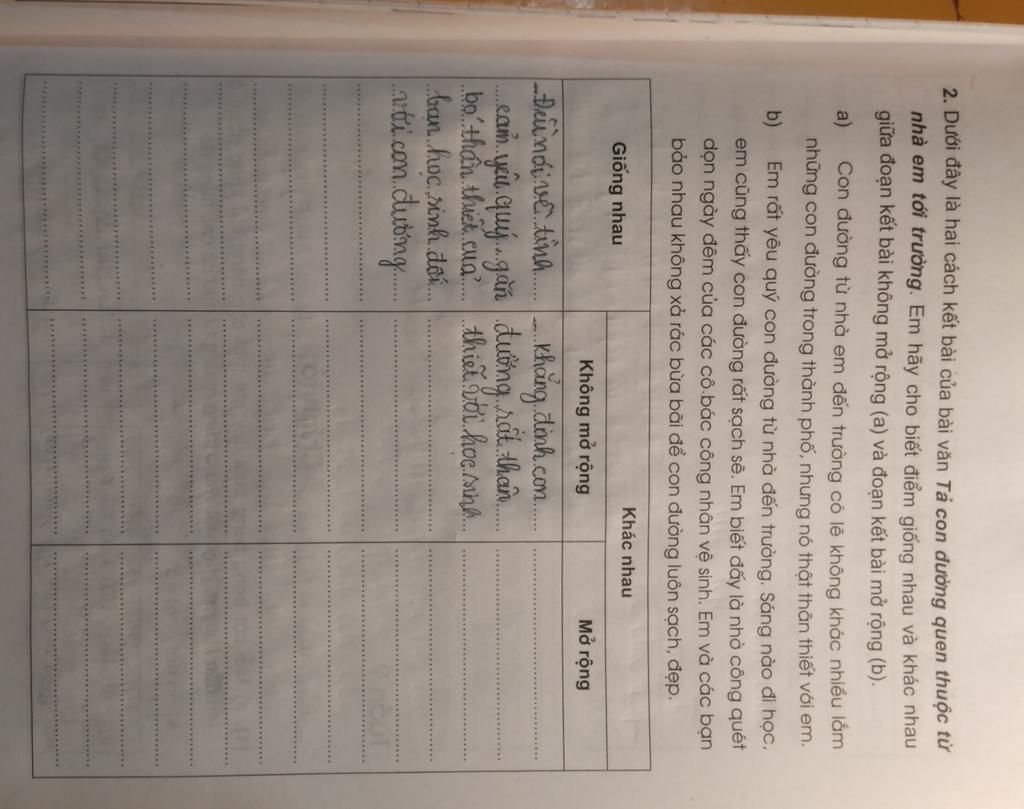 2. Dưới đây là hai cách kết bài của bài văn Tả con đường quen thuộc từ
nhà em tới trường. Em hãy cho biết điểm giống nhau và khác nhau
giữa đoạn kết bài không mở rộng (a) và đoạn kết bài mở rộng (b).
a) Con đường từ nhà em đến trường có lẽ không khác nhiều lắm
những con đường trong thành phố, nhưng nó thật thân thiết với em.
b) Em rất yêu quý con đường từ nhà đến trường. Sáng nào đi học,
em cũng thấy con đường rất sạch sẽ. Em biết đấy là nhờ công quét
dọn ngày đêm của các cô bác công nhân vệ sinh. Em và các bạn
bảo nhau không xả rác bừa bãi để con đường luôn sạch, đẹp.
Giống nhau
Khác nhau
Không mở rộng
Mở rộng
- Đều nói về tình
cảm yêu quý, gắn
bó thân thiết của
bạn học sinh đối
với con đường
- Khẳng định con
đường rất thân
thiết với học sinh